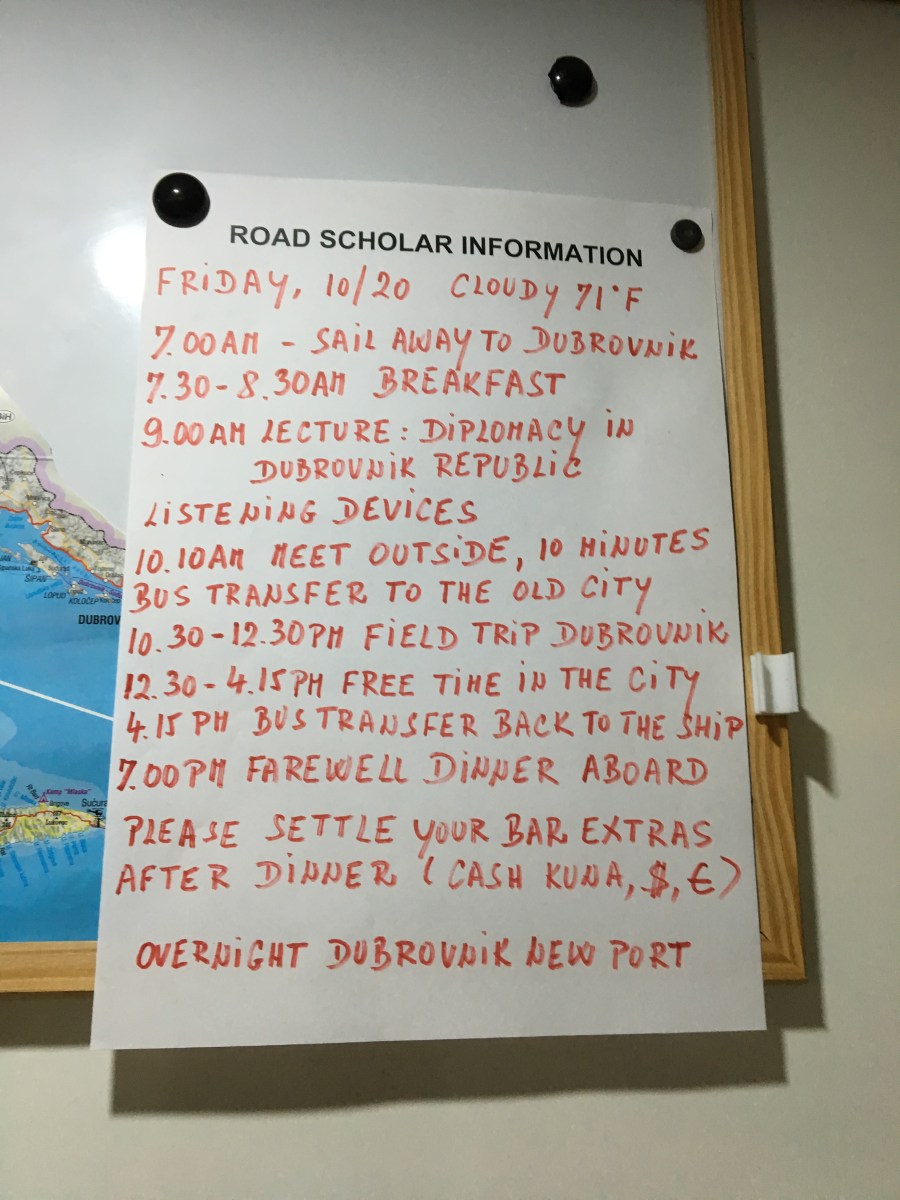 ROAD SCHOLAR INFORMATION
FRIDAY, 10/20 CLOUDY 71°F
7.00AM - SAIL AWAY TO DUBROVNIK
7.30-8.30AM BREAKFAST
9.00AM LECTURE: DIPLOMACY IN
DUBROVNIK REPUBLIC
LISTENING DEVICES
10.10AM MEET OUTSIDE, 10 MINUTES
BUS TRANSFER TO THE OLD CITY
10.30-12.30PM FIELD TRIP DUBROVNIK
12.30-4.15PM FREE TIME IN THE CITY
4.15 PM BUS TRANSFER BACK TO THE SHIP
7.00PM FAREWELL DINNER ABOARD
PLEASE SETTLE YOUR BAR EXTRAS
AFTER DINNER (CASH KUNA, $, €)
OVERNIGHT DUBROVNIK NEW PORT
BIH
ŠIPAN
LOPUD
KOLOČEP
DUBROV
Kamp "Mlaska"
Sućura